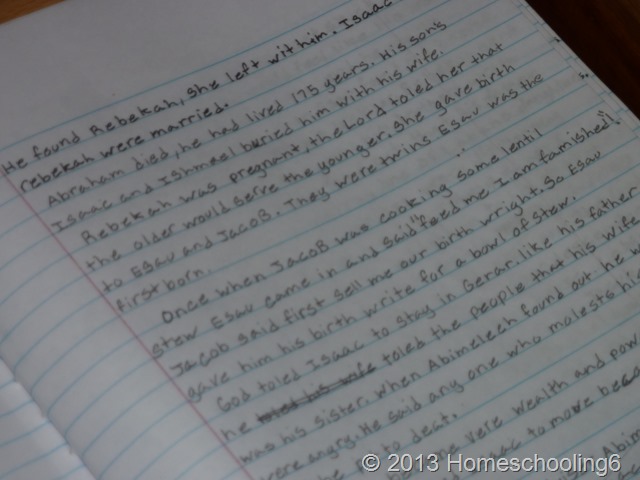 He found Rebekah, she left with him. Isaac
rebekah were married.
Abraham died, he had lived 175 years. His sons
Isaac and Ishmael buried him with his wife.
Rebekah was pregnant, the Lord toled her that
the older would serve the younger. She gave birth
to Esau and JacoB. They were twins Esau was the
first born.
Once when JacoB was cooking some lentil
stew Esau came in and said "feed me I am famished".
Jacob said first sell me our birth wright. So Esau
gave him his birth write for a bowl of stew.
God toled Isaac to stay in Gerar. like his father
he toled his wife toled the people that his wife
was his sister. When Abimelech found out he
were angry. He said any one who molests his
to deat.
very wealth and pow
to move beca
© 2013 Homeschooling6